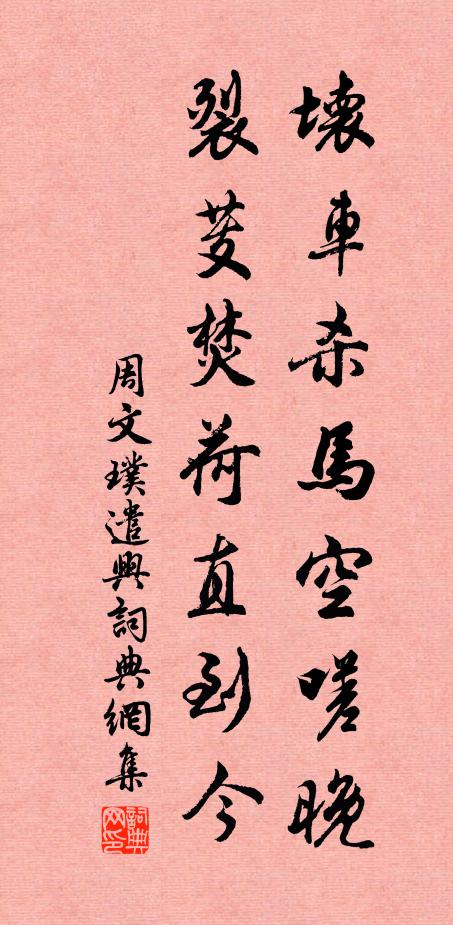 壊車杀馬空嗟晚
裂芰焚荷直到今
周文璞遣興詞典網集
詞典网印